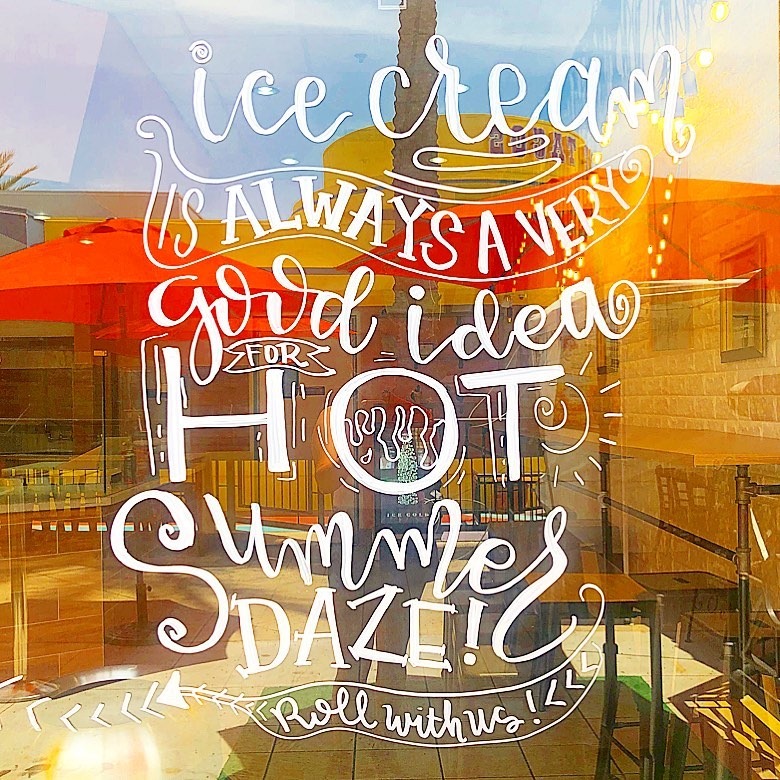 ice cream
IS ALWAYS A VERY
good idea
FOR
HOT
Summer
DAZE!
Roll with us!
ICE COLD